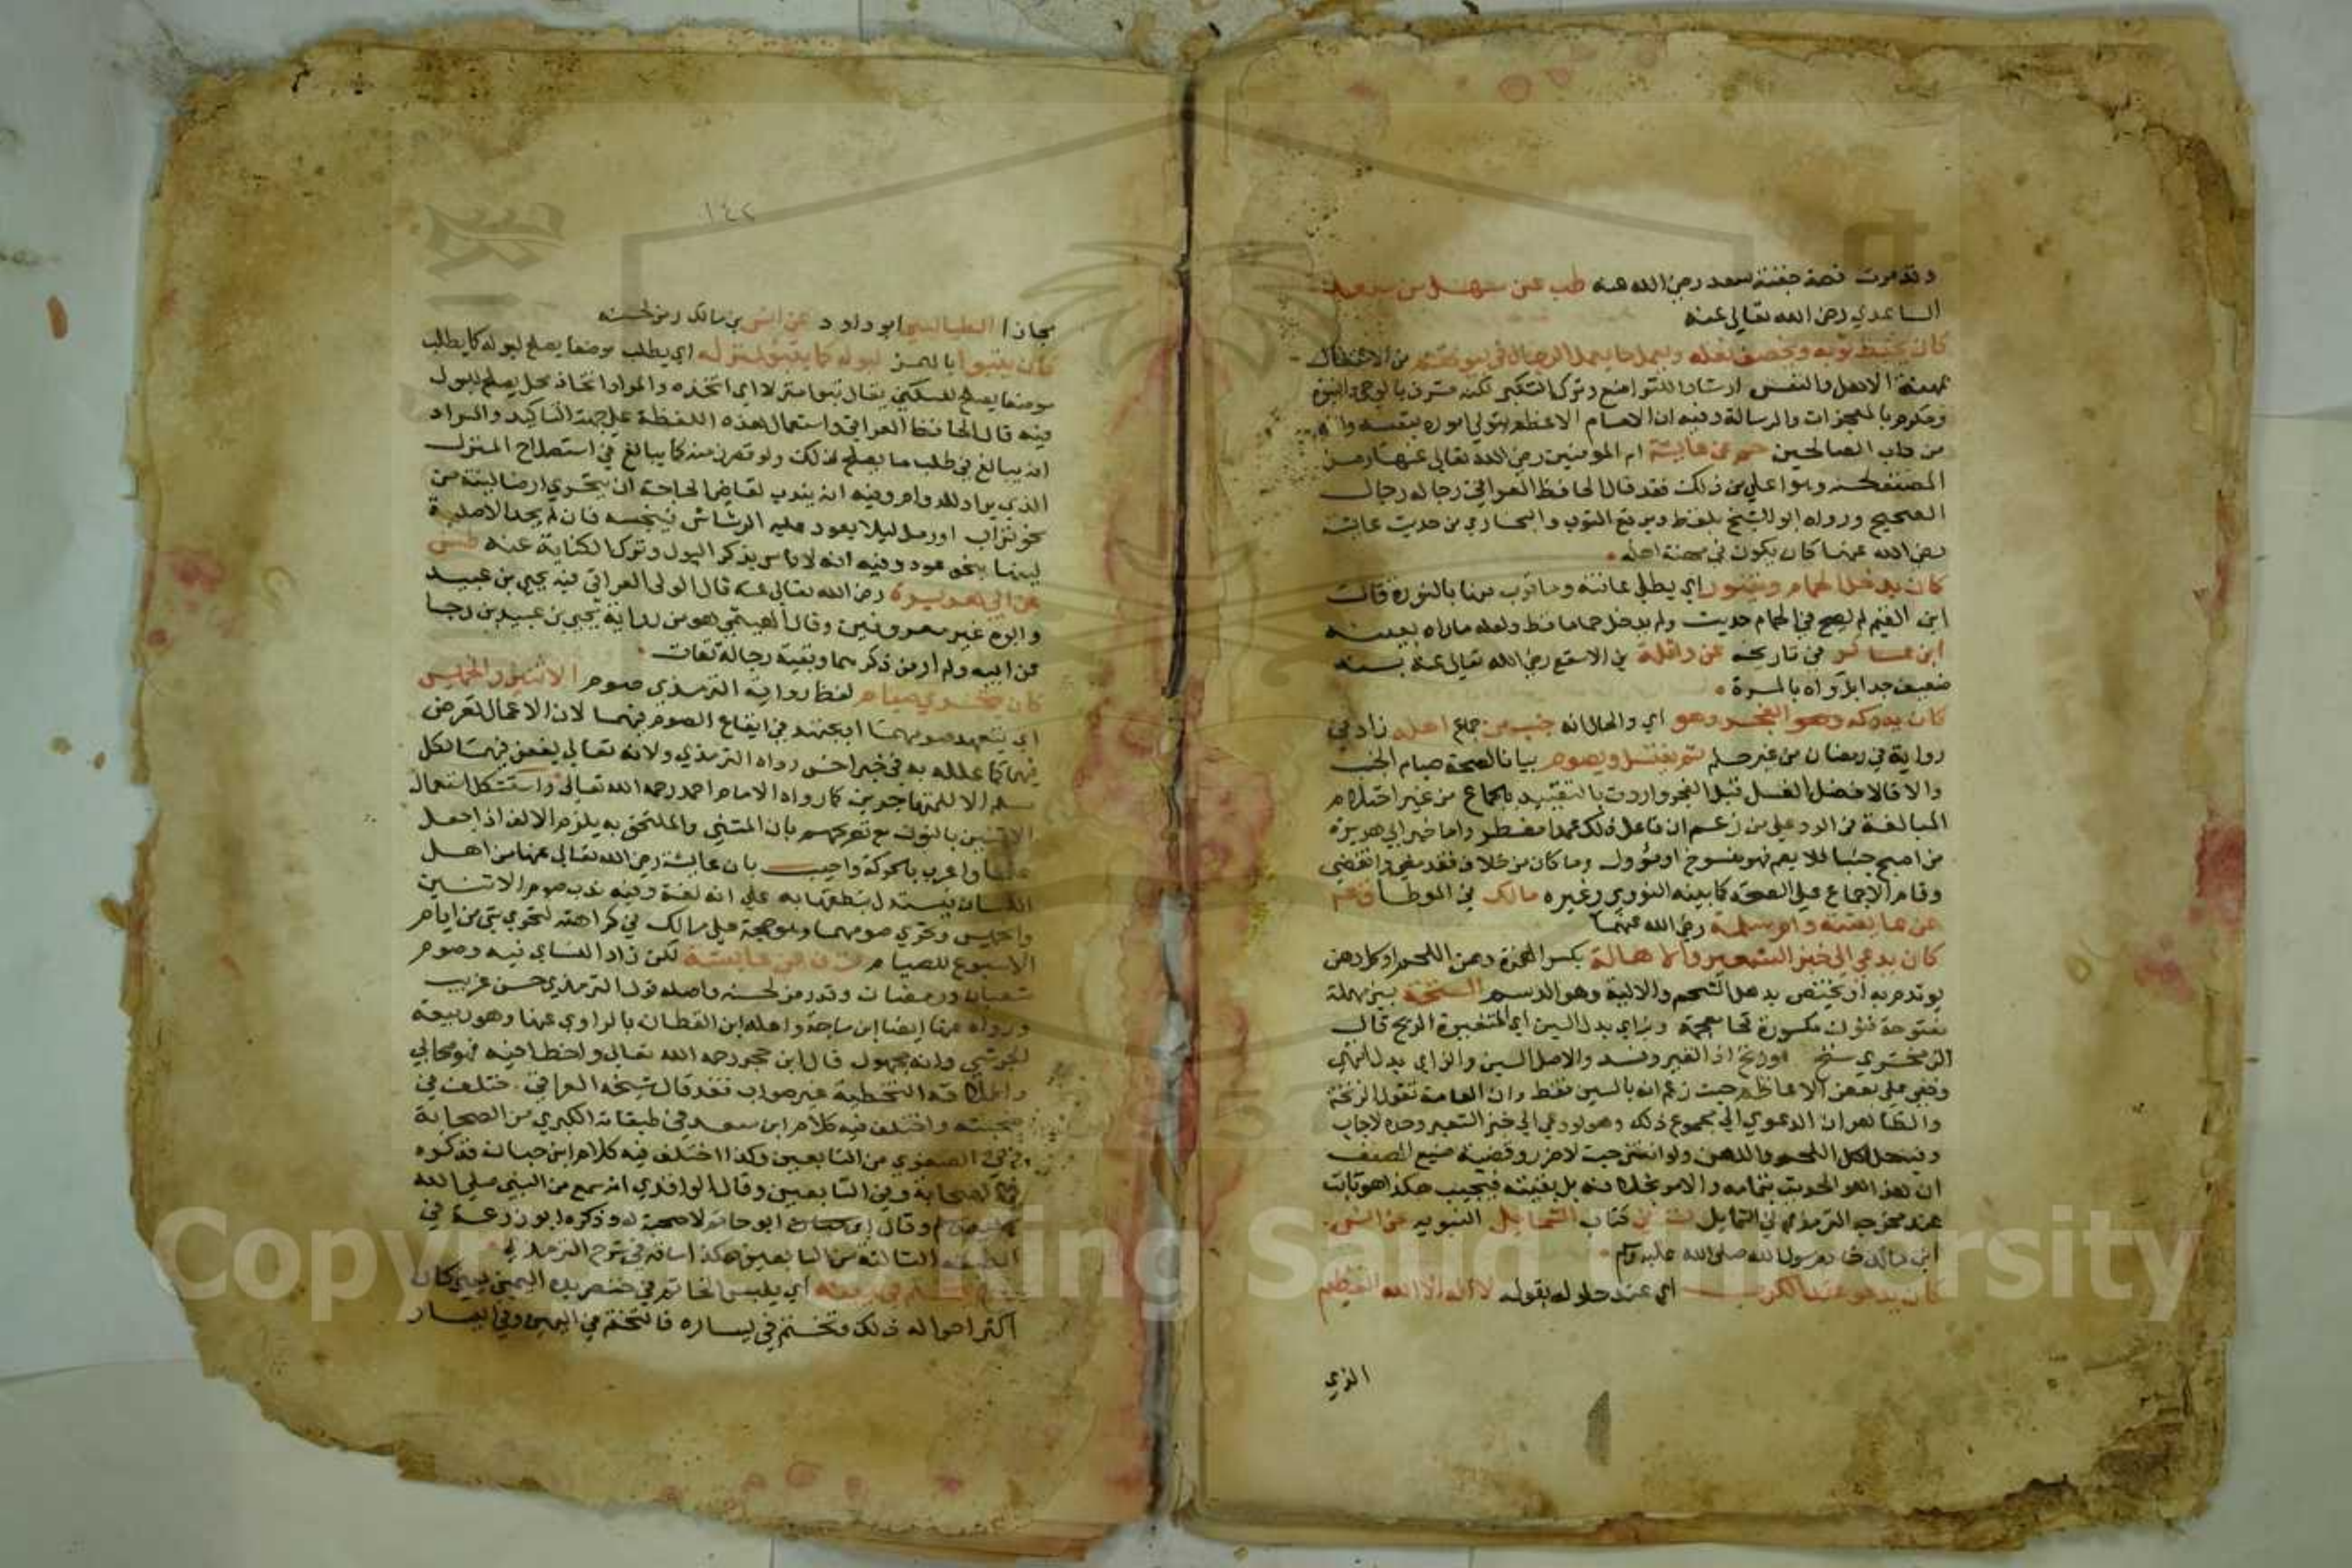 وقد مرت قصة جفنة سعد رضي الله عنه طب عن سهل بن سعد
الساعدي رضي الله تعالى عنه
كان يخيط ثوبه ويخصف نعله ويعمل ما يعمل الرجال في بيوتهم من الاشتغال
بمهنة الاهل والنفس ارشادا للتواضع وترك التكبر لكنه مشرف بالوحي والنبوة
ومكرم بالمعجزات والرسالة وفيه ان الامام الاعظم يتولى اموره بنفسه وانه
من داب الصالحين حم عن عايشة ام المومنين رضي الله تعالى عنها رمز
المصنف لحسنه وهو اعلى من ذلك فقد قال الحافظ العراقي رجاله رجال
الصحيح ورواه ابو الشيخ بلفظ ويرقع الثوب والبخاري من حديث عايشة
رضي الله عنها كان يكون في مهنة اهله
كان يدخل الحمام ويتنور اي يطلي عانته وما قرب منها بالنورة قالت
ابن القيم لم يصح في الحمام حديث ولم يدخل حماما قط ولعله ما راه بعينه
ابن عساكر في تاريخه عن واثلة بن الاسقع رضي الله تعالى عنه بسند
ضعيف جدا بل واه بالمرة
كان يدركه وهو الفجر وهو اي والحال انه جنب من جماع اهله زاد في
رواية في رمضان من غير حلم ثم يغتسل ويصوم بيانا لصحة صيام الجنب
والا فالافضل الغسل قبل الفجر واردت بالتقييد بالجماع من غير احتلام
المبالغة في الرد على من زعم ان فاعل ذلك عمدا مفطر واما خبر ابي هريرة
من اصبح جنبا فلا يصم فهو منسوخ او مؤول وما كان من خلاف فقد مضى وانقضى
وقام الاجماع على الصحة كما بينه النووي وغيره مالك في الموطأ
عن عايشة وام سلمة رضي الله عنهما
كان يدعى الى خبز الشعير والاهالة بكسر الهمزة دهن اللحم او كل دهن
يوتدم به او يختص بدهن الشحم والالية وهو الدسم السنخة بسين مهملة
مفتوحة فنون مكسورة فخا معجمة وبزاي بدل السين اي المتغيرة الريح قال
الزمخشري سنخ وزنخ اذا تغير وفسد والاصل السين والزاي بدل انتهى
وخفي على بعض الاعاظم حيث زعم انه بالسين فقط وان العامة تقول الزنخة
والظاهر ان الدعوى الى مجموع ذلك وهو لو دعي الى خبز الشعير وحده لاجاب
وفيه حل اكل اللحم والدهن ولو انتن حيث لا ضرر وقضية صنيع المصنف
ان هذا هو الحديث بتمامه والامر بخلافه بل بقيته فيجيب هكذا هو ثابت
عند مخرجه الترمذي في الشمايل كتاب الشمايل النبوية عن انس
ابن مالك خادم رسول الله صلى الله عليه وسلم
كان يدعو عند الكرب اي عند حلوله بقوله لا اله الا الله العظيم
الذي
١٤٢
مجازا الطيالسي ابو داود عن انس بن مالك رمز لحسنه
كان يتبوا بالهمز لبوله كما يتبؤ لمنزله اي يطلب موضعا يصلح لبوله كما يطلب
موضعا يصلح للسكنى يقال تبوا منزلا اي اتخذه والمراد اتخاذ محل يصلح للبول
فيه قال الحافظ العراقي واستعمال هذه اللفظة على جهة التاكيد والمراد
انه يبالغ في طلب ما يصلح لذلك ولو قصر زمنه كما يبالغ في استصلاح المنزل
الذي يراد للدوام وفيه انه يندب لقاضي الحاجة ان يتحرى ارضا لينة من
نحو تراب او رمل ليلا يعود عليه الرشاش فينجسه فان لم يجد الا صلبة
لينها بنحو عود وفيه انه لا باس بذكر البول وترك الكناية عنه طس
عن ابي هريرة رضي الله تعالى عنه قال الولي العراقي فيه يحيى بن عبيد
وابوه غير معروفين وقال الهيتمي هو من رواية يحيى بن عبيد بن رجا
عن ابيه ولم ار من ذكرهما وبقية رجاله ثقات
كان يتحرى صيام لفظ رواية الترمذي صوم الاثنين والخميس
اي يتعمد صومهما او يجتهد في ايقاع الصوم فيهما لان الاعمال تعرض
فيهما كما علله به في خبر اخر رواه الترمذي ولانه تعالى يغفر فيهما لكل
مسلم الا المتهاجرين كما رواه الامام احمد رحمه الله تعالى واستشكل استعمال
الاثنين بالنون مع تصريحهم بان المثنى والملحق به يلزم الالف اذا جعل
علما واعرب بالحركة واجيب بان عايشة رضي الله تعالى عنها من اهل
اللسان فيستدل بنطقها به على انه لغة وفيه ندب صوم الاثنين
والخميس وتحري صومهما وهو حجة على مالك في كراهته لتحري شي من ايام
الاسبوع للصيام ت ن عن عايشة لكن زاد النساي فيه وصوم
شعبان ورمضان وقد رمز لحسنه واصله قول الترمذي حسن غريب
ورواه عنها ايضا ابن ماجة واعله ابن القطان بالراوي عنها وهو ربيعة
الجرشي وانه مجهول قال ابن حجر رحمه الله تعالى واخطا فيه فهو صحابي
واطلاقه التخطية غير صواب فقد قال شيخه العراقي اختلف في
صحبته واختلف فيه كلام ابن سعد ففي طبقاته الكبرى من الصحابة
وفي الصغرى من التابعين وكذا اختلف فيه كلام ابن حبان فذكره
في الصحابة وفي التابعين وقال الواقدي انه سمع من النبي صلى الله
عليه وسلم وقال ابو حاتم لا صحبة له وذكره ابو زرعة في
الطبقة الثالثة من التابعين هكذا ساقه في شرح الترمذي
كان يتختم في يمينه اي يلبس الخاتم في خنصر يده اليمنى يعني كان
اكثر احواله ذلك وتختم في يساره فالتختم في اليمين وفي اليسار
Copyright © King Saud University